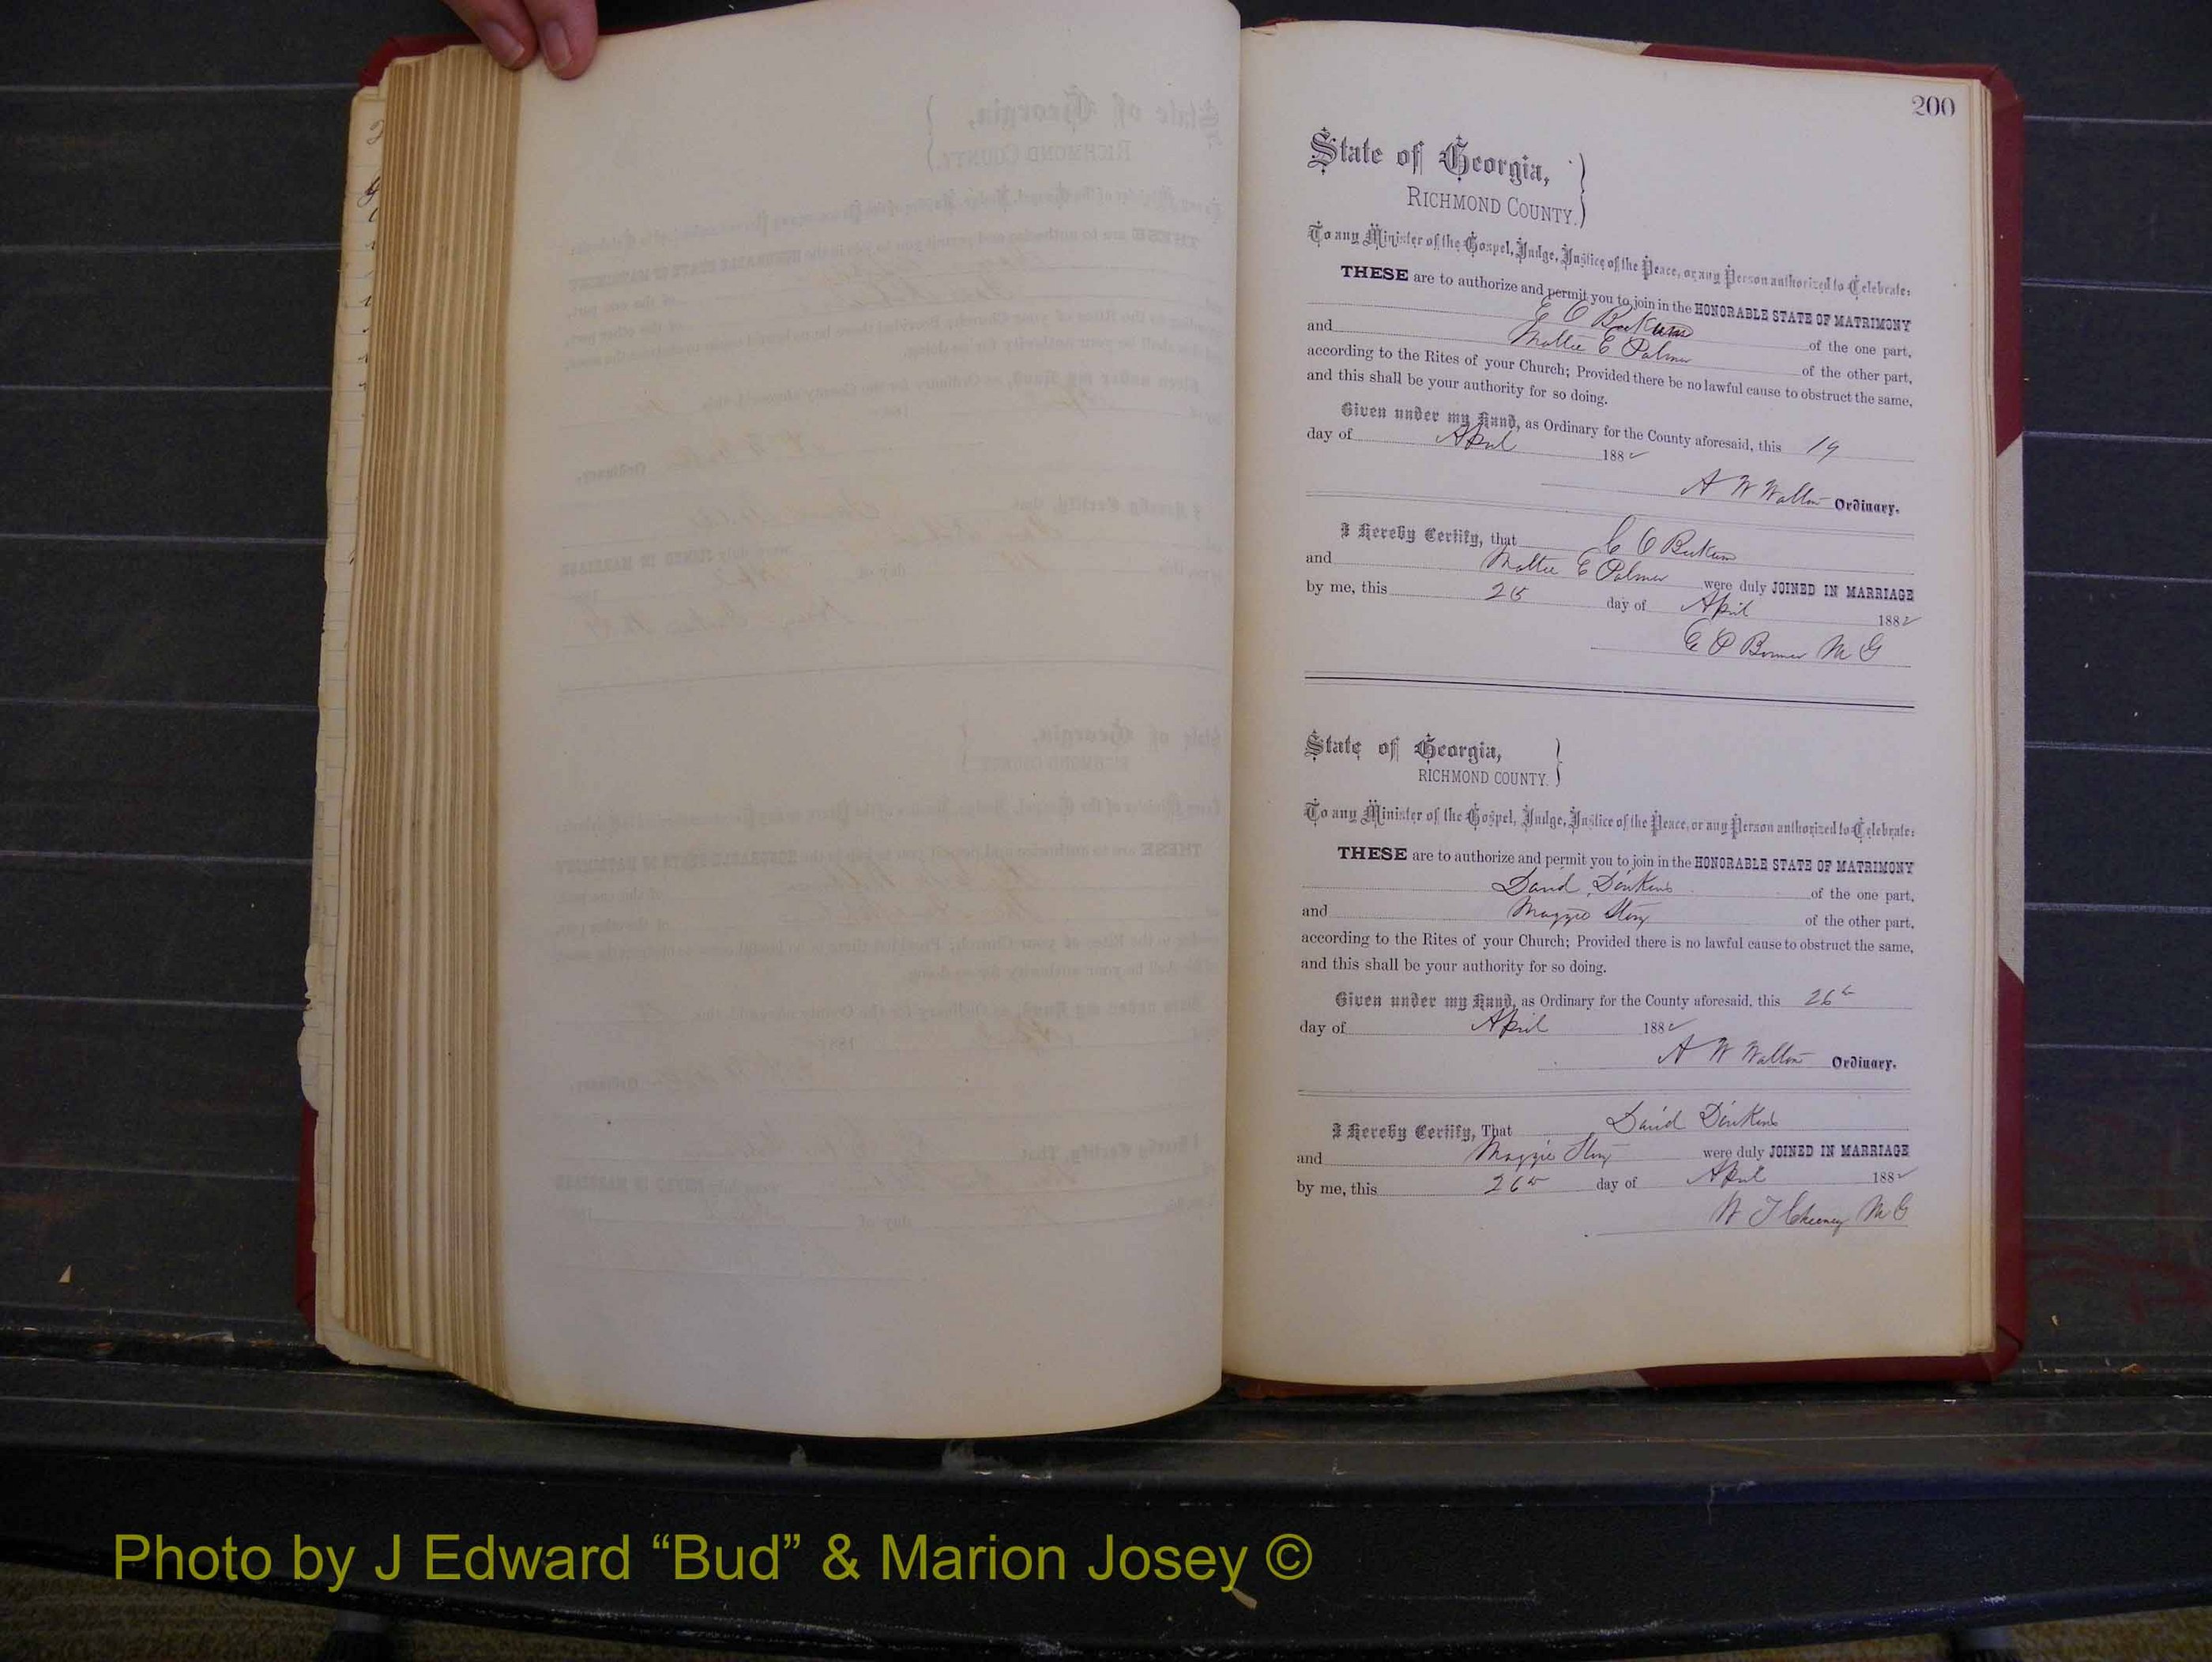 200
State of Georgia,
RICHMOND COUNTY.
To any Minister of the Gospel, Judge, Justice of the Peace, or any Person authorized to Celebrate:
THESE are to authorize and permit you to join in the HONORABLE STATE OF MATRIMONY
E O of the one part,
and Mattie E Palmer of the other part,
according to the Rites of your Church; Provided there be no lawful cause to obstruct the same,
and this shall be your authority for so doing.
Given under my Hand, as Ordinary for the County aforesaid, this 19
day of April 1882
A W Walton Ordinary.
I Hereby Certify, that
and Mattie E Palmer were duly JOINED IN MARRIAGE
by me, this 25 day of April 1882
M G
State of Georgia,
RICHMOND COUNTY.
To any Minister of the Gospel, Judge, Justice of the Peace, or any Person authorized to Celebrate:
THESE are to authorize and permit you to join in the HONORABLE STATE OF MATRIMONY
David Dinkins of the one part,
and Maggie of the other part,
according to the Rites of your Church; Provided there is no lawful cause to obstruct the same,
and this shall be your authority for so doing.
Given under my Hand, as Ordinary for the County aforesaid, this 26th
day of April 1882
A W Walton Ordinary.
I Hereby Certify, That David Dinkins
and Maggie were duly JOINED IN MARRIAGE
by me, this 26th day of April 1882
W J M G
Photo by J Edward “Bud” & Marion Josey ©